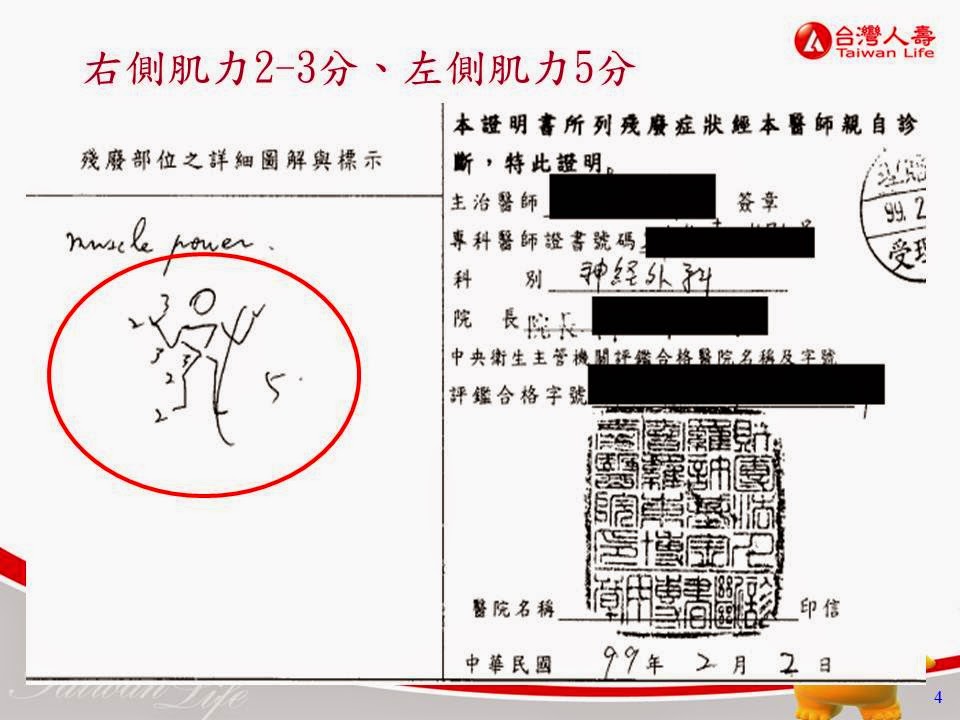 台灣人壽
Taiwan Life
右側肌力2-3分、左側肌力5分
殘廢部位之詳細圖解與標示
muscle power.
3
2
3
3
2
2
5.
本證明書所列殘廢症狀經本醫師親自診
斷,特此證明。
主治醫師 簽章
專科醫師證書號碼
科 別 神経外科
院 長 院長
中央衛生主管機關評鑑合格醫院名稱及字號
評鑑合格字號
99.2
受理
醫院名稱 印信
中華民國 99 年 2 月 2 日
Taiwan Life
4